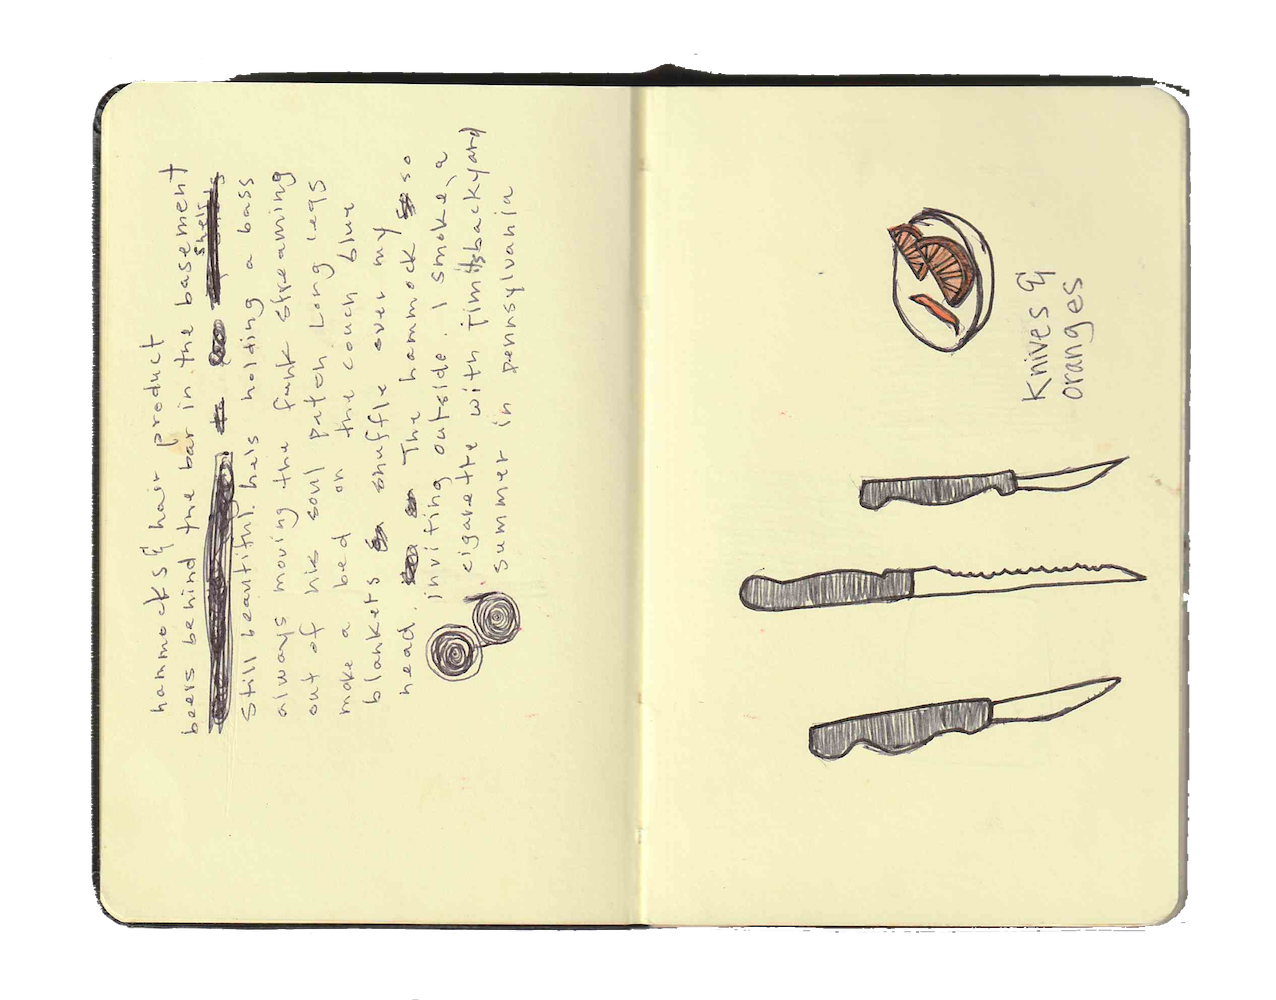 hammocks & hair product
beers behind the bar in the basement
shelf
still beautiful. he's holding a bass
always moving the funk streaming
out of his soul patch Long legs
make a bed on the couch blue
blankets shuffle over my
head. The hammock so
inviting outside. I smoke a
cigarette with jim itsbackyard
summer in pennsylvania
Knives &
oranges